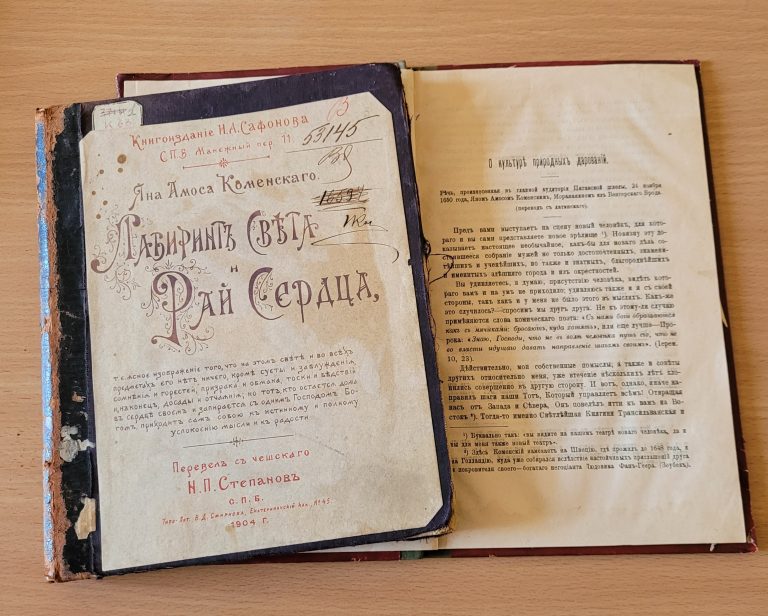 Книгоизданіе И.А. Сафонова
С.П.Б. Манежный пер. 11.
53145
Яна Амоса Коменскаго.
Лабиринтъ Свѣта
и
Рай Сердца,
т. е. ясное изображеніе того, что на этомъ свѣтѣ и во всѣхъ
предметахъ его нѣтъ ничего, кромѣ суеты и заблужденія,
сомнѣнія и горестей, призрака и обмана, тоски и бѣдствій
и, наконецъ, досады и отчаянія; но тотъ, кто остается дома
въ сердцѣ своемъ и запирается съ однимъ Господомъ Бо-
гомъ, приходитъ самъ собою къ истинному и полному
успокоенію мысли и къ радости.
Перевелъ съ чешскаго
Н.П. Степановъ
С.П.Б.
Типо-Лит. В.Д. Смирнова, Екатерининскій кан., № 45.
1904 г.
О культурѣ природныхъ дарованій.
Рѣчь, произнесенная въ главной аудиторіи Патакской школы, 24 ноября
1650 года, Яномъ Амосомъ Коменскимъ, Моравяниномъ изъ Венгерскаго Брода.
(переводъ съ латинскаго).
Предъ вами выступаетъ на сцену новый человѣкъ, для кото-
раго и вы сами представляете новое зрѣлище ¹). Новизну эту до-
казываетъ настоящее необычайное, какъ-бы для новаго дѣла со-
стоявшееся собраніе мужей не только достопочтенныхъ, знамени-
тѣйшихъ и ученѣйшихъ, но также и знатныхъ, благороднѣйшихъ
и именитыхъ здѣшняго города и изъ окрестностей.
Вы удивляетесь, я думаю, присутствію человѣка, видѣть кото-
раго вамъ и на умъ не приходило; удивляюсь также и я съ своей
стороны, такъ какъ и у меня не было этого въ мысляхъ. Какъ-же
это случилось?—спросимъ мы другъ друга. Не къ этому-ли случаю
примѣняются слова комическаго поэта: «Съ нами боги обращаются
какъ съ мячиками: бросаютъ, куда хотятъ», или еще лучше—Про-
рока: «Знаю, Господи, что не въ волѣ человѣка путь его, что не
во власти идущаго давать направленіе шагамъ своимъ». (Іерем.
10, 23).
Дѣйствительно, мои собственные помыслы, а также и совѣты
другихъ относительно меня, уже втеченіе нѣсколькихъ лѣтъ кло-
нились совершенно въ другую сторону. И вотъ, однако, иначе на-
правилъ шаги наши Тотъ, Который управляетъ всѣмъ! Отвращая
насъ отъ Запада и Сѣвера, Онъ повелѣлъ итти къ вамъ на Во-
стокъ ²). Тогда-то именно Свѣтлѣйшая Княгиня Трансильванская и
¹) Буквально такъ: «вы видите на вашемъ театрѣ новаго человѣка, да и
вы для меня также новый театръ».
²) Здѣсь Коменскій намекаетъ на Швецію, гдѣ прожилъ до 1648 года, и
на Голландію, куда уже собирался вслѣдствіе настойчивыхъ приглашеній друга
и покровителя своего—богатаго негоціанта Людовика Фанъ-Геера. (Зоубекъ).